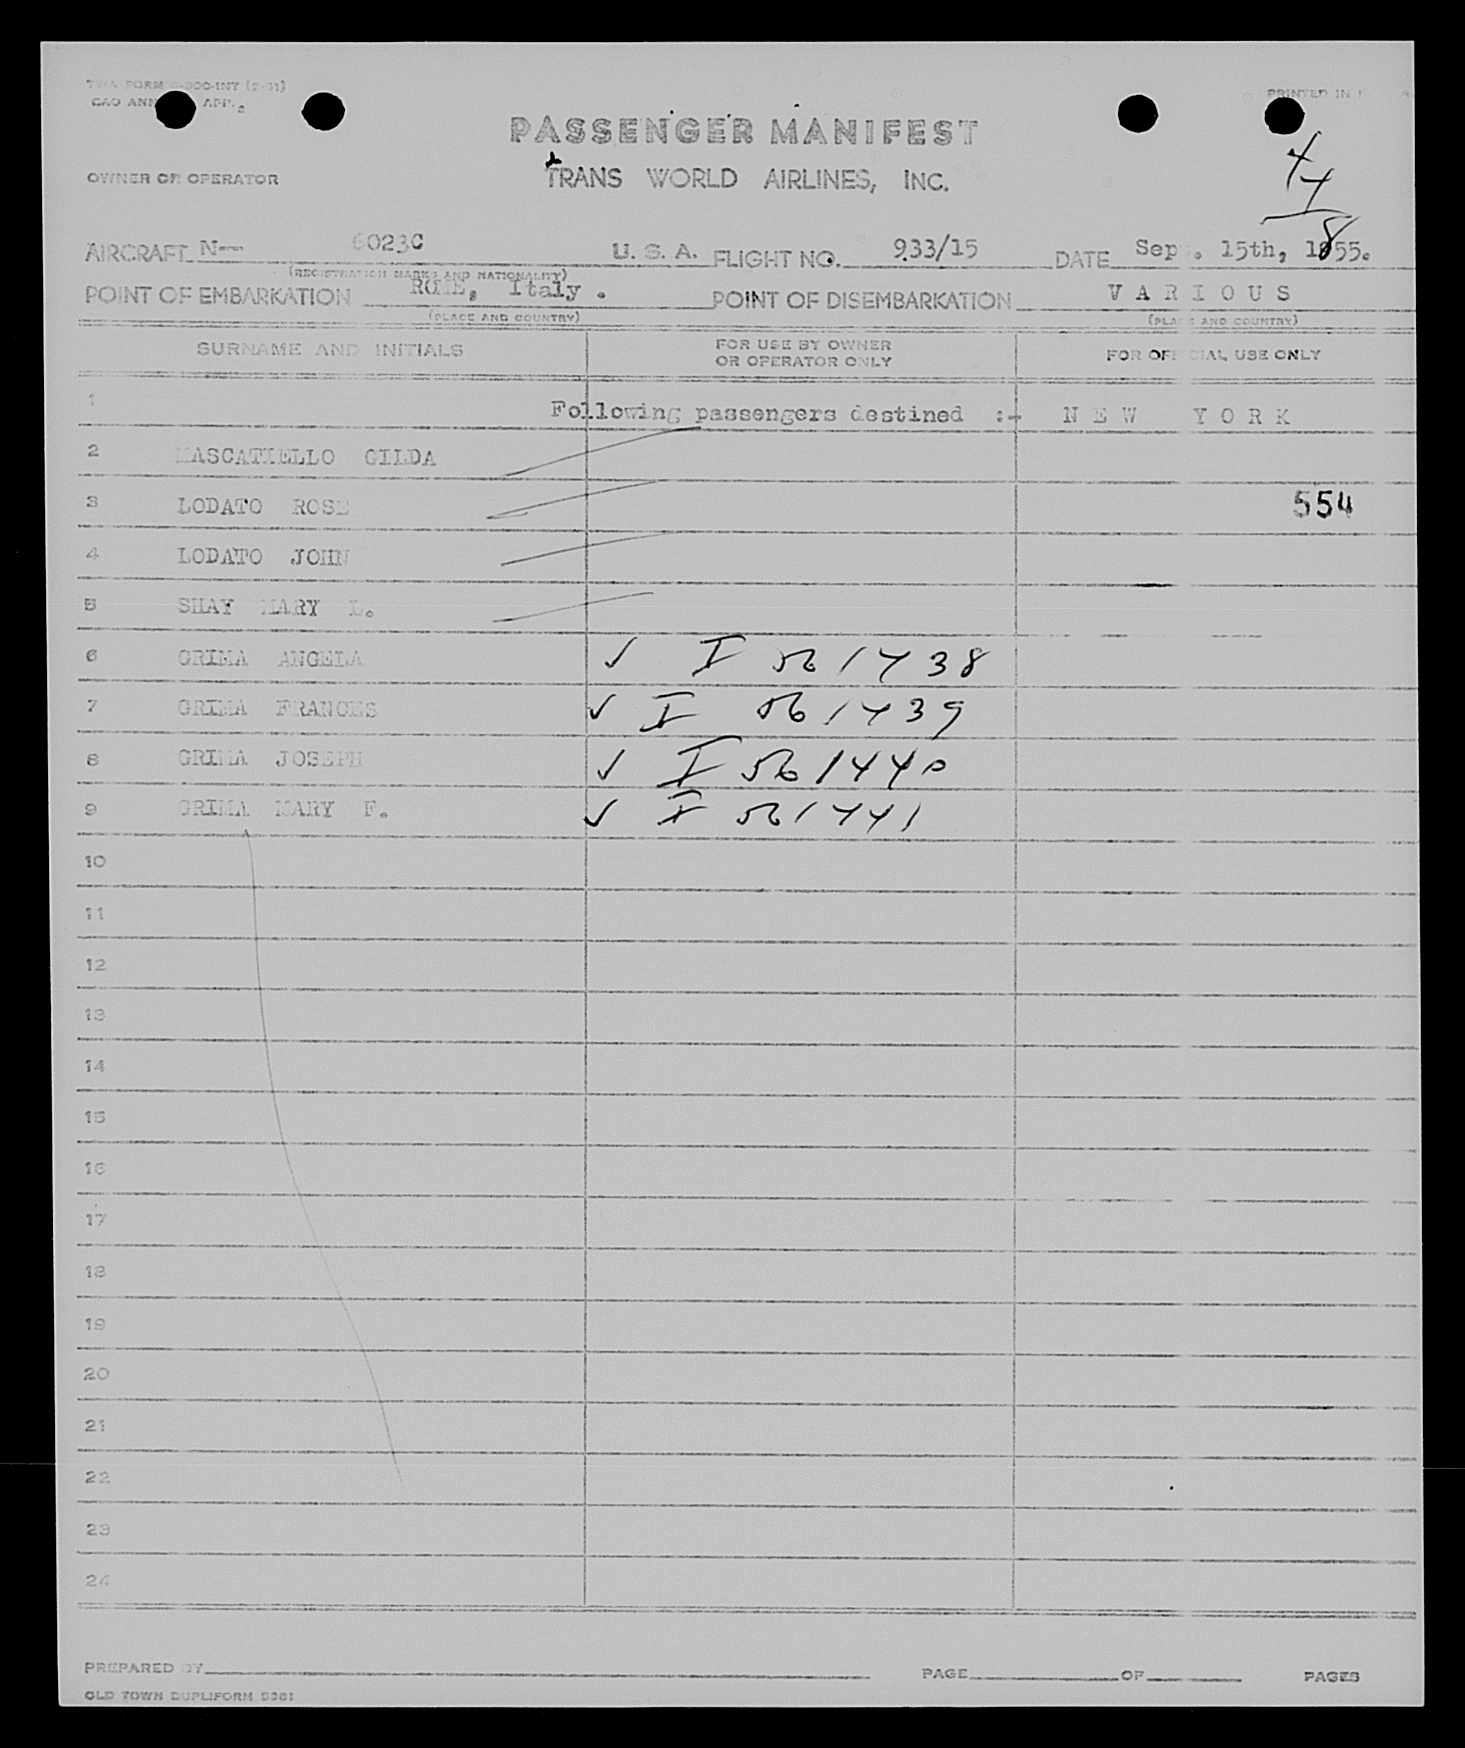 TWA FORM
PRINTED IN
PASSENGER MANIFEST
OWNER OR OPERATOR
TRANS WORLD AIRLINES, INC.
4
4
8
AIRCRAFT N-- 6023C U. S. A. FLIGHT NO. 933/15 DATE Sep . 15th, 1955.
(REGISTRATION MARKS AND NATIONALITY)
POINT OF EMBARKATION ROME, Italy . POINT OF DISEMBARKATION V A R I O U S
(PLACE AND COUNTRY) (PLACE AND COUNTRY)
SURNAME AND INITIALS FOR USE BY OWNER OR OPERATOR ONLY FOR OFFICIAL USE ONLY
1 Following passengers destined :- N E W Y O R K
2 MASCATIELLO GILDA
3 LODATO ROSE 554
4 LODATO JOHN
5 SHAY MARY L.
6 GRIMA ANGELA ✓ I 561438
7 GRIMA FRANCES ✓ I 561439
8 GRIMA JOSEPH ✓ I 561440
9 GRIMA MARY F. ✓ I 561441
10
11
12
13
14
15
16
17
18
19
20
21
22
23
24
PREPARED BY PAGE OF PAGES
OLD TOWN DUPLIFORM